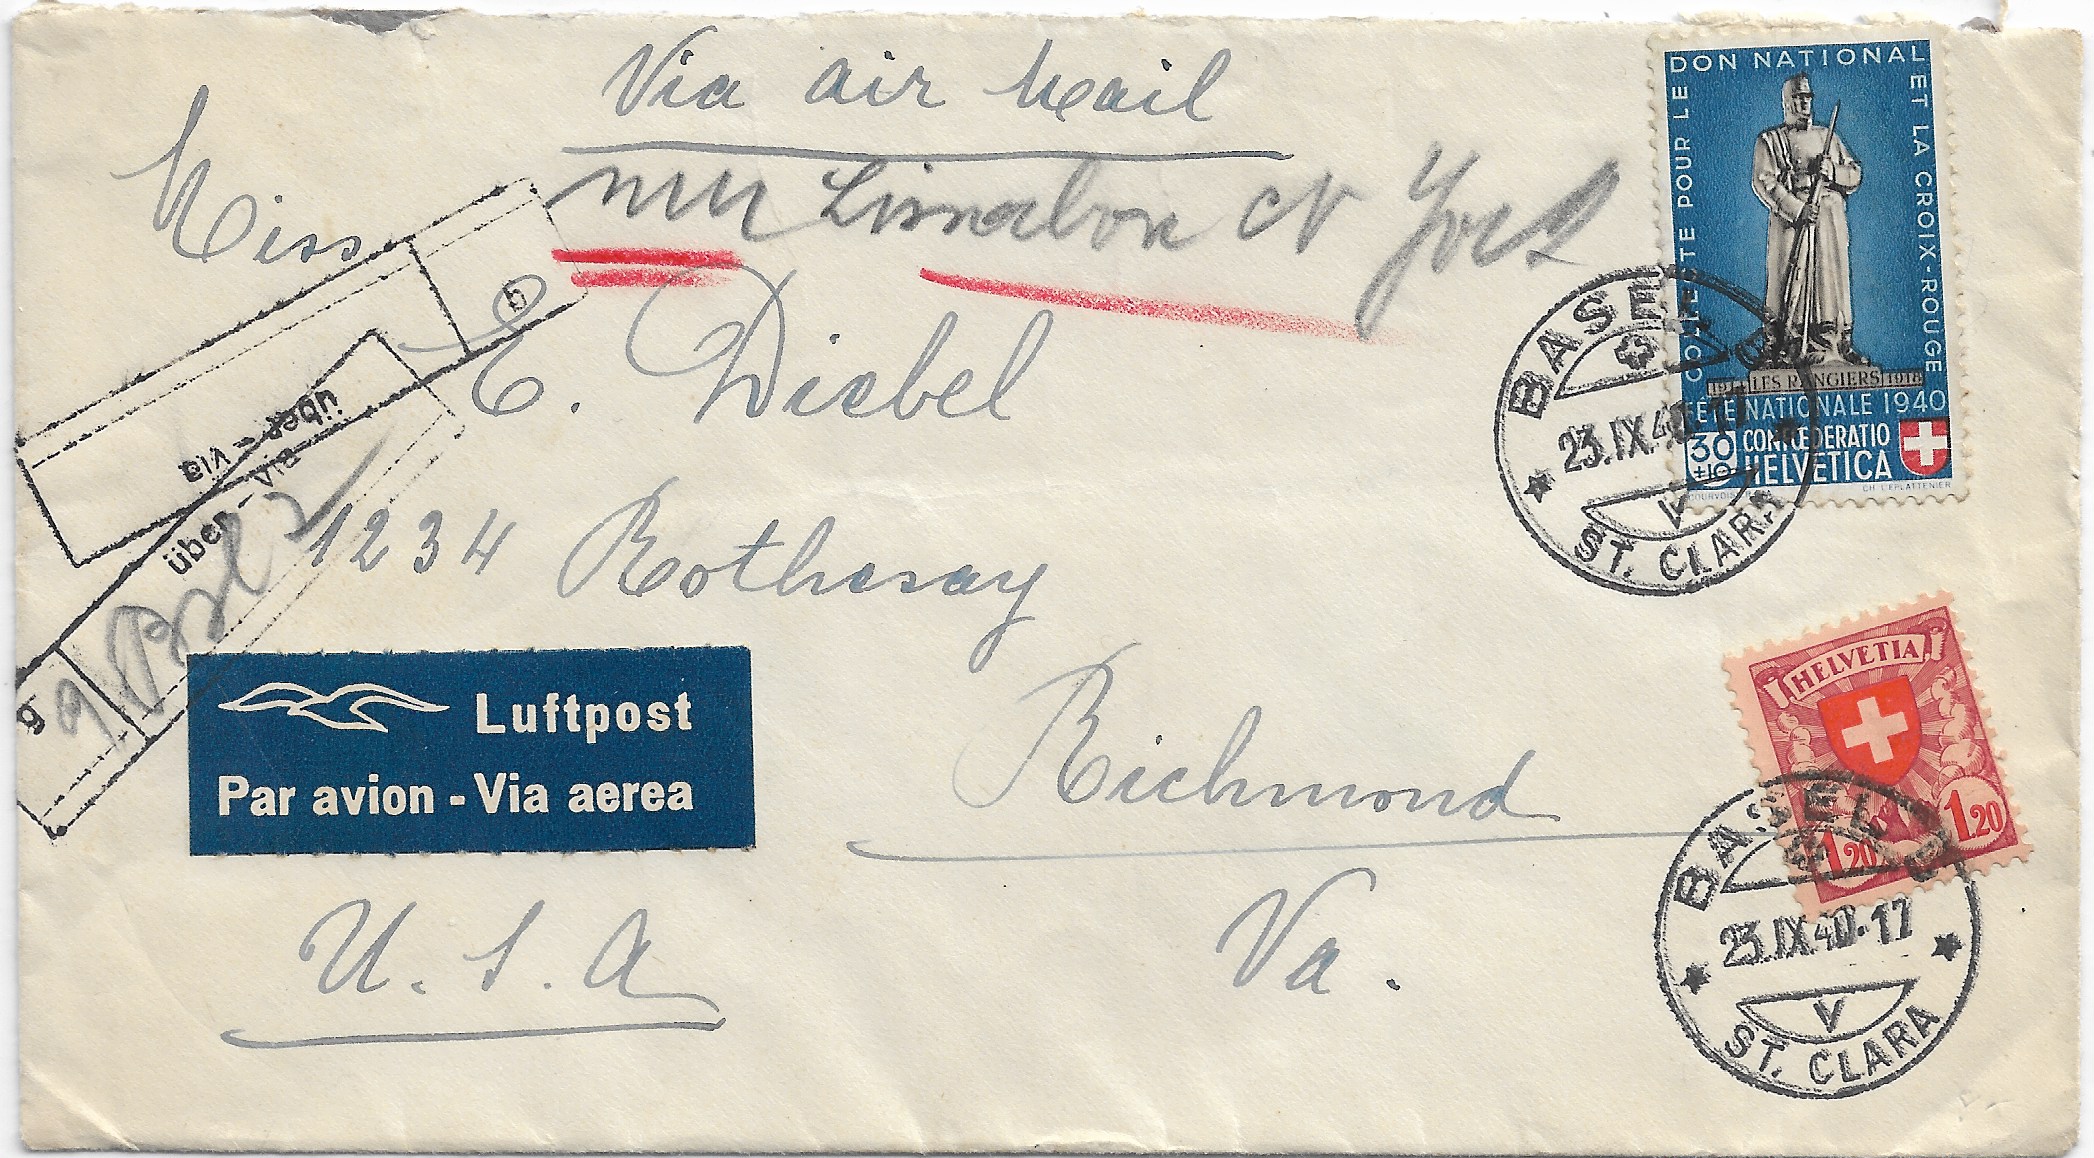 Via air Mail
Miss
nur Lissabon N York
C. Diebel
1234 Rothesay
Richmond
Va.
U. S. A
Luftpost
Par avion - Via aerea
über - via
über - via
g
COLLECTE POUR LE DON NATIONAL ET LA CROIX-ROUGE
1914 LES RANGIERS 1918
FÊTE NATIONALE 1940
30 +10
CONFŒDERATIO
HELVETICA
COURVOISIER
CH. L'EPLATTENIER
BASEL
23.IX.40.17
V
ST. CLARA
HELVETIA
1.20
1.20
BASEL
23.IX.40.17
V
ST. CLARA